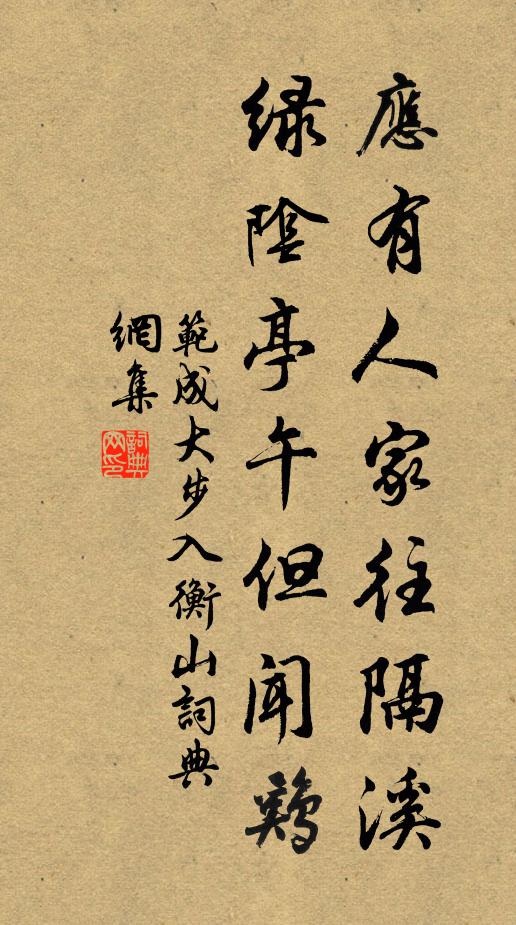 應有人家往隔溪
綠陰亭午但聞鷄
範成大步入衡山詞典
網集
詞典
网印